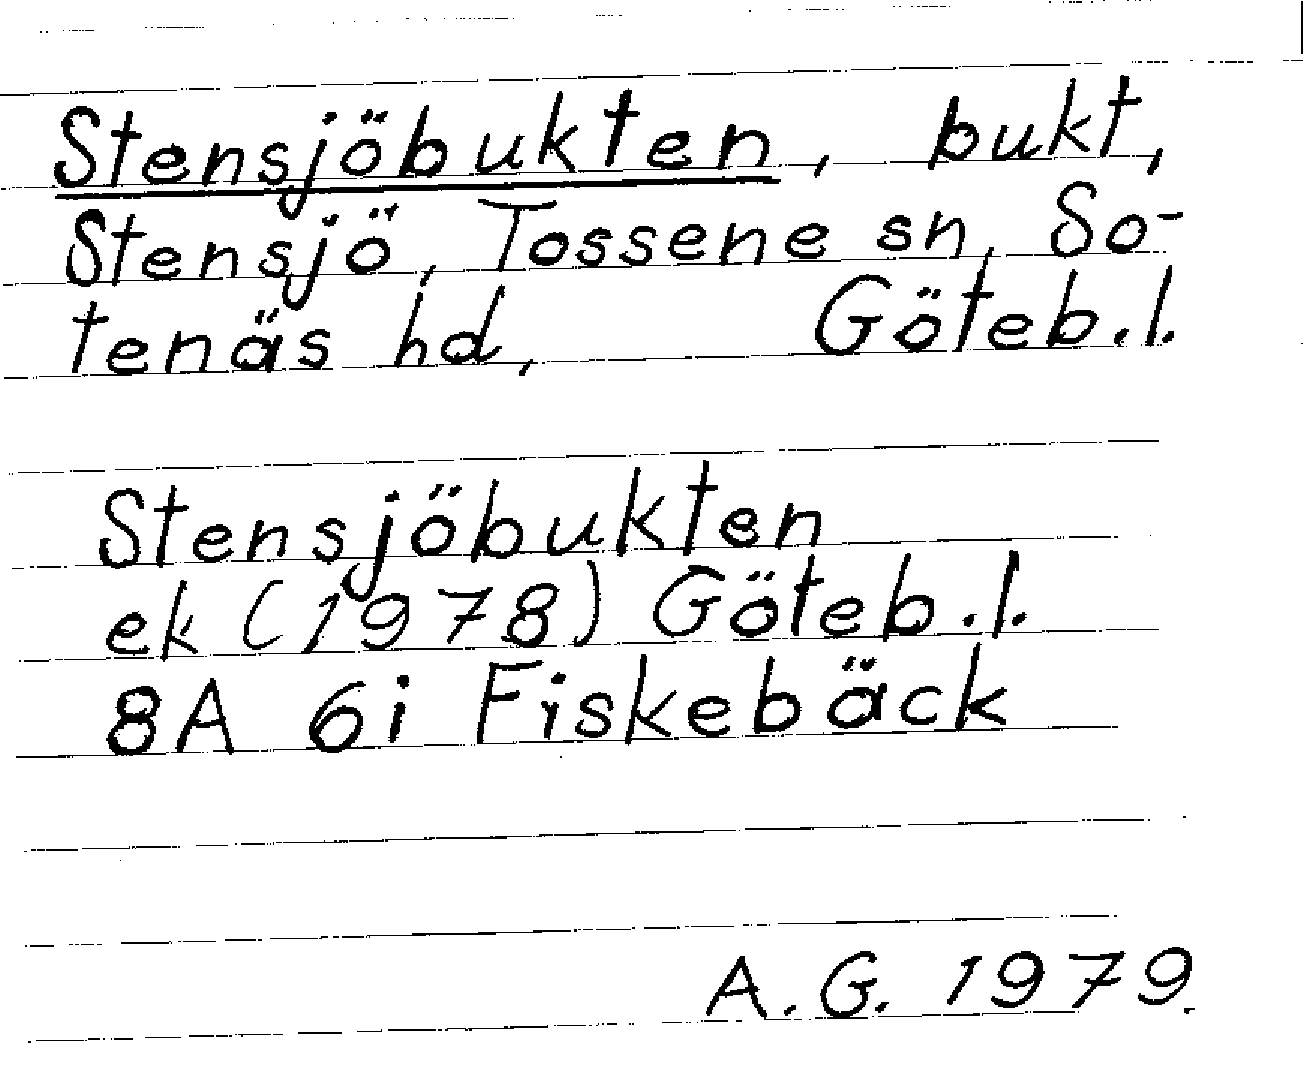 Stensjöbukten, bukt,
Stensjö, Tossene sn, So-
tenäs hd, Göteb.l.
Stensjöbukten
ek (1978) Göteb.l.
8A 6i Fiskebäck
A.G. 1979.